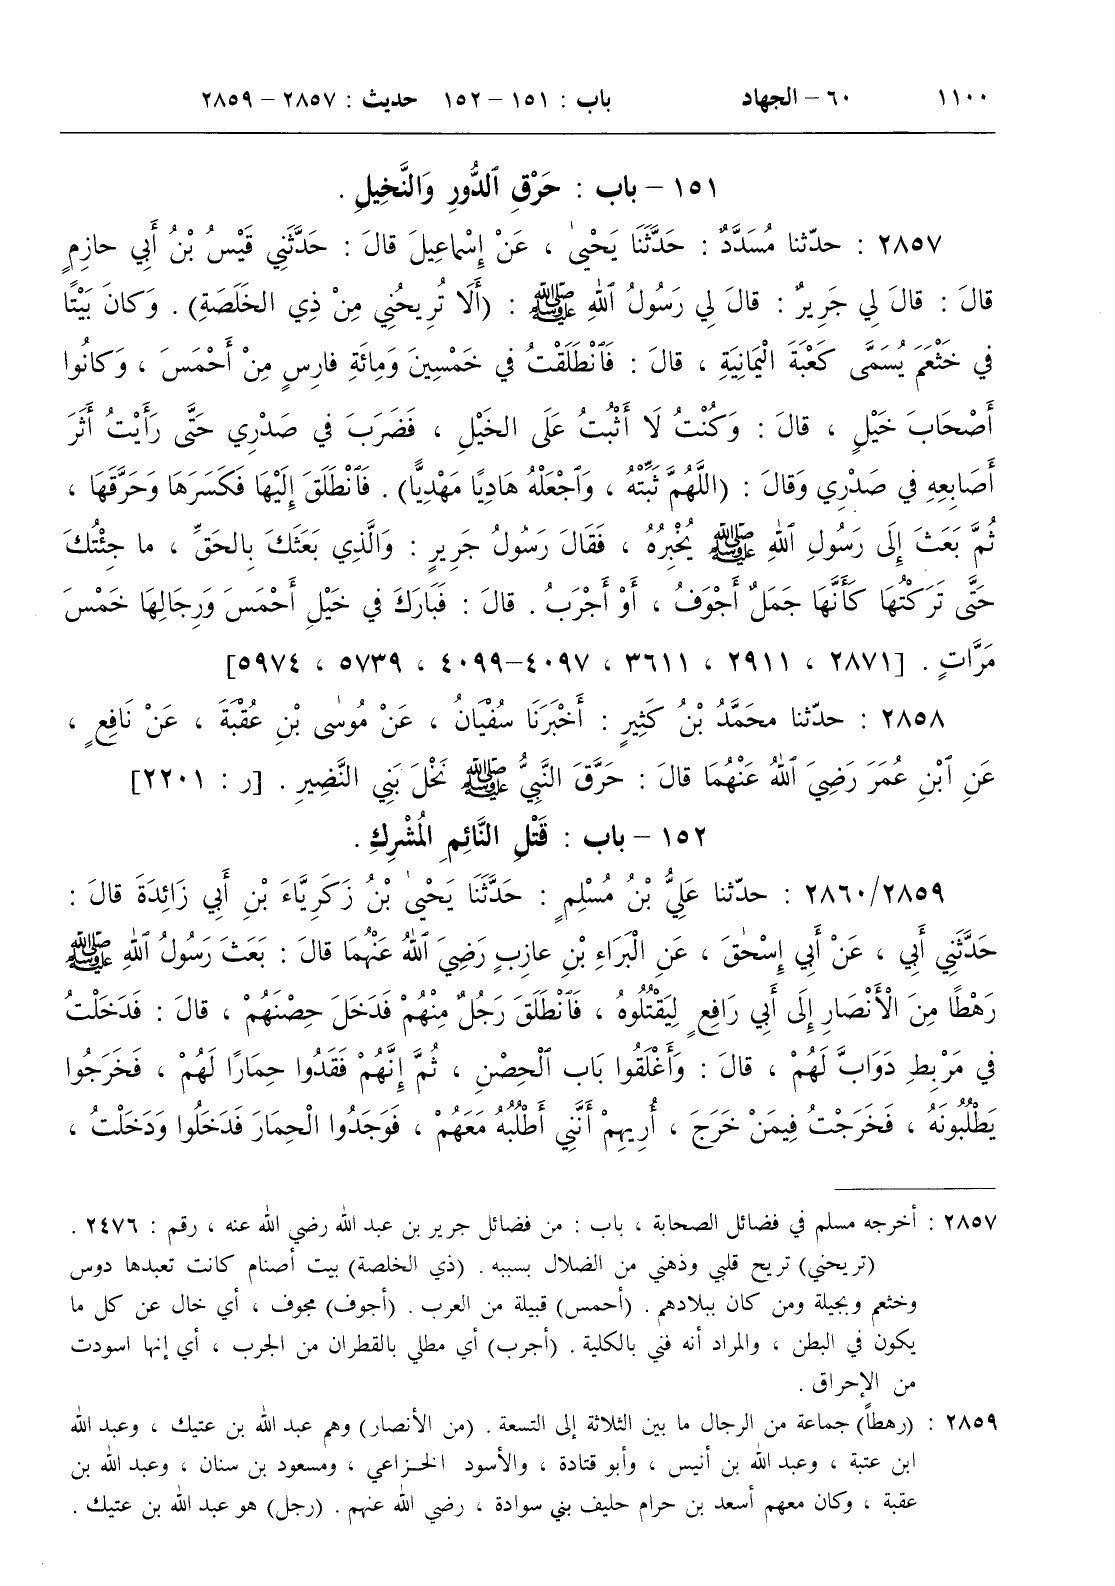 ١١٠٠ ٦٠ – الجهاد باب : ١٥١ – ١٥٢ حديث : ٢٨٥٧ – ٢٨٥٩
١٥١ – باب : حَرْقِ ٱلدُّورِ وَالنَّخِيلِ .
٢٨٥٧ : حدّثنا مُسَدَّدٌ : حَدَّثَنَا يَحْيىٰ ، عَنْ إِسْماعِيلَ قالَ : حَدَّثَنِي قَيْسُ بْنُ أَبِي حازِمٍ
قالَ : قالَ لِي جَرِيرٌ : قالَ لِي رَسُولُ ٱللهِ ﷺ : (أَلَا تُرِيحُنِي مِنْ ذِي الخَلَصَةِ) . وَكانَ بَيْتًا
فِي خَثْعَمَ يُسَمَّى كَعْبَةَ الْيَمَانِيَةِ ، قالَ : فَٱنْطَلَقْتُ فِي خَمْسِينَ وَمِائَةِ فارِسٍ مِنْ أَحْمَسَ ، وَكانُوا
أَصْحَابَ خَيْلٍ ، قالَ : وَكُنْتُ لَا أَثْبُتُ عَلَى الخَيْلِ ، فَضَرَبَ فِي صَدْرِي حَتَّى رَأَيْتُ أَثَرَ
أَصَابِعِهِ فِي صَدْرِي وَقالَ : (اللَّهُمَّ ثَبِّتْهُ ، وَٱجْعَلْهُ هَادِيًا مَهْدِيًّا) . فَٱنْطَلَقَ إِلَيْهَا فَكَسَرَهَا وَحَرَّقَهَا ،
ثُمَّ بَعَثَ إِلَى رَسُولِ ٱللهِ ﷺ يُخْبِرُهُ ، فَقَالَ رَسُولُ جَرِيرٍ : وَالَّذِي بَعَثَكَ بِالحَقِّ ، ما جِئْتُكَ
حَتَّى تَرَكْتُهَا كَأَنَّهَا جَمَلٌ أَجْوَفُ ، أَوْ أَجْرَبُ . قالَ : فَبَارَكَ فِي خَيْلِ أَحْمَسَ وَرِجالِهَا خَمْسَ
مَرَّاتٍ . [٢٨٧١ ، ٢٩١١ ، ٣٦١١ ، ٤٠٩٧–٤٠٩٩ ، ٥٧٣٩ ، ٥٩٧٤]
٢٨٥٨ : حدّثنا محَمَّدُ بْنُ كَثِيرٍ : أَخْبَرَنَا سُفْيَانُ ، عَنْ مُوسٰى بْنِ عُقْبَةَ ، عَنْ نَافِعٍ ،
عَنِ ٱبْنِ عُمَرَ رَضِيَ ٱللهُ عَنْهُمَا قالَ : حَرَّقَ النَّبِيُّ ﷺ نَخْلَ بَنِي النَّضِيرِ . [ر : ٢٢٠١]
١٥٢ – باب : قَتْلِ النَّائِمِ المُشْرِكِ .
٢٨٦٠/٢٨٥٩ : حدّثنا عَلِيُّ بْنُ مُسْلِمٍ : حَدَّثَنَا يَحْيىٰ بْنُ زَكَرِيَّاءَ بْنِ أَبِي زَائِدَةَ قالَ :
حَدَّثَنِي أَبِي ، عَنْ أَبِي إِسْحٰقَ ، عَنِ الْبَرَاءِ بْنِ عازِبٍ رَضِيَ ٱللهُ عَنْهُمَا قالَ : بَعَثَ رَسُولُ ٱللهِ ﷺ
رَهْطًا مِنَ الْأَنْصَارِ إِلَى أَبِي رَافِعٍ لِيَقْتُلُوهُ ، فَٱنْطَلَقَ رَجُلٌ مِنْهُمْ فَدَخَلَ حِصْنَهُمْ ، قالَ : فَدَخَلْتُ
فِي مَرْبِطِ دَوَابَّ لَهُمْ ، قالَ : وَأَغْلَقُوا بَابَ ٱلْحِصْنِ ، ثُمَّ إِنَّهُمْ فَقَدُوا حِمارًا لَهُمْ ، فَخَرَجُوا
يَطْلُبُونَهُ ، فَخَرَجْتُ فِيمَنْ خَرَجَ ، أُرِيهِمْ أَنَّنِي أَطْلُبُهُ مَعَهُمْ ، فَوَجَدُوا الْحِمَارَ فَدَخَلُوا وَدَخَلْتُ ،
٢٨٥٧ : أخرجه مسلم في فضائل الصحابة ، باب : من فضائل جرير بن عبد الله رضي الله عنه ، رقم : ٢٤٧٦ .
(تريحني) تريح قلبي وذهني من الضلال بسببه . (ذي الخلصة) بيت أصنام كانت تعبدها دوس
وخثعم وبجيلة ومن كان ببلادهم . (أحمس) قبيلة من العرب . (أجوف) مجوف ، أي خال عن كل ما
يكون في البطن ، والمراد أنه فني بالكلية . (أجرب) أي مطلي بالقطران من الجرب ، أي إنها اسودت
من الإحراق .
٢٨٥٩ : (رهطاً) جماعة من الرجال ما بين الثلاثة إلى التسعة . (من الأنصار) وهم عبد الله بن عتيك ، وعبد الله
ابن عتبة ، وعبد الله بن أنيس ، وأبو قتادة ، والأسود الخزاعي ، ومسعود بن سنان ، وعبد الله بن
عقبة ، وكان معهم أسعد بن حرام حليف بني سوادة ، رضي الله عنهم . (رجل) هو عبد الله بن عتيك .